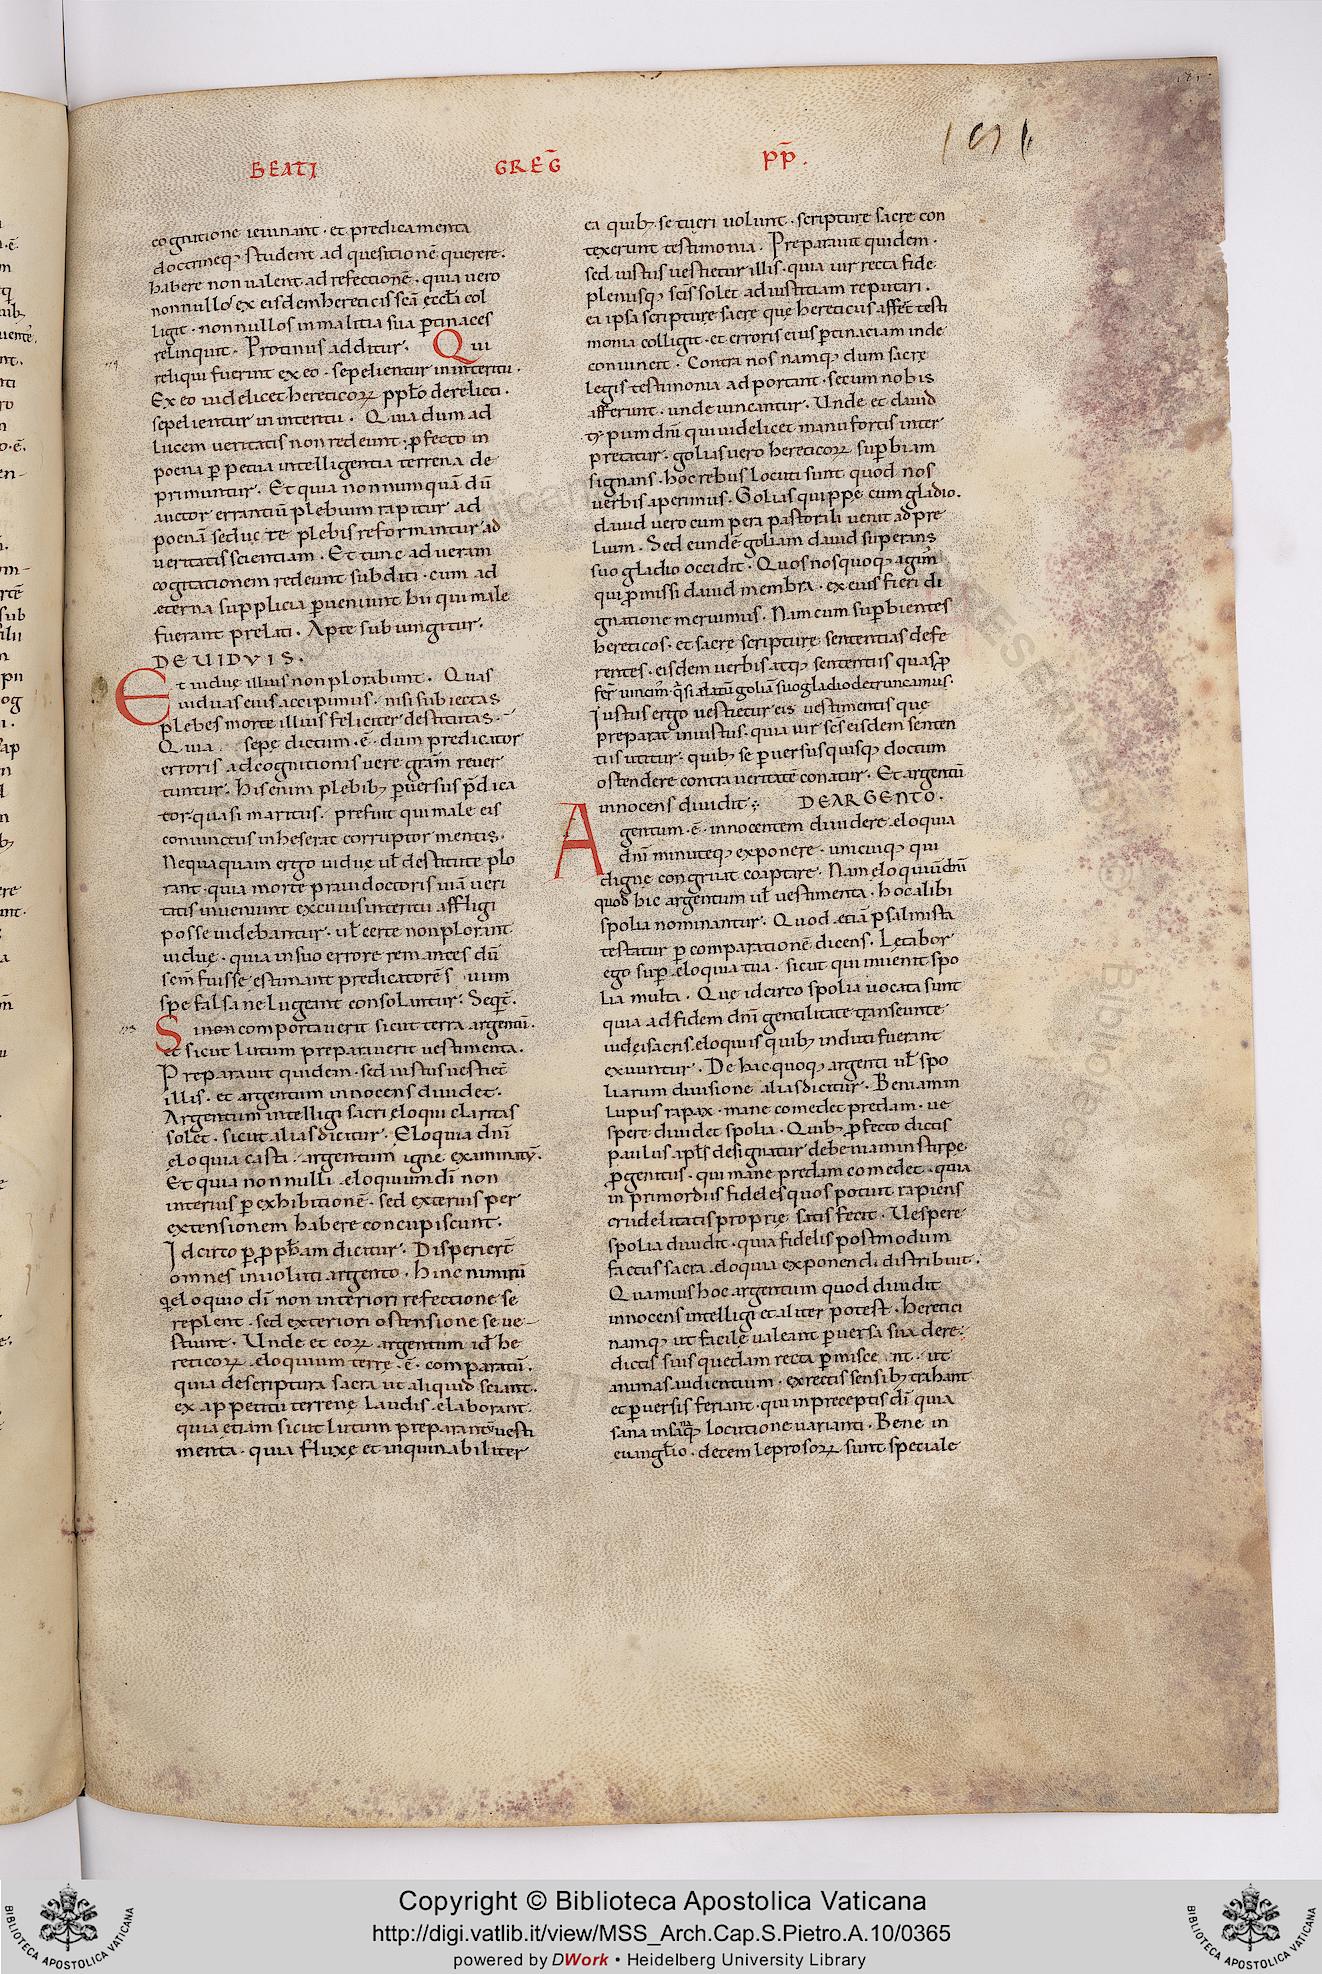 BEATI GREḠ PP̄.
cognitione ieiunant · et predicamenta
doctrineq; student ad questionē querere·
habere non valent ad refectionē · quia vero
nonnullos ex eisdem hereticis scā eccl̄a col
ligit · nonnullos in malitia sua ꝑtinaces
relinquit · Protinus additur · Qui
reliqui fuerint ex eo · sepelientur in interitu ·
Ex eo videlicet hereticoꝝ pplō derelicti ·
sepelientur in interitu · Quia dum ad
lucem veritatis non redeunt · ꝓfecto in
poena ꝑpetua intelligentia terrena de
primuntur · Et quia nonnunquā dū
auctor errantiū plebium rapitur ad
poenā seducte plebis reformantur ad
veritatis scientiam · Et tunc ad veram
cogitationem redeunt subditi · cum ad
ęterna supplicia ꝑveniunt hii qui male
fuerant prelati · Apte subiungitur ·
DE VIDVIS ·
Et viduę illius non plorabunt · Quas
viduas eius accipimus · nisi subiectas
plebes morte illius feliciter destitutas ·
Quia sepe dictum · ē · dum predicator
erroris ad cognitionis vere grām rever
tuntur · His enim plebib; ꝑversus p̄dica
tor quasi maritus prefuit qui male eis
coniunctus inheserat corruptor mentis ·
Nequaquam ergo viduę ul̄ destitute plo
rant · quia morte pravi doctoris viā veri
tatis inveniunt ex cuius interitu affligi
posse videbantur · ul̄ certe non plorant
viduę · quia in suo errore remanētes dū
sem̄ fuisse estimant predicatorēs suum
spe falsa ne lugeant consolantur · Seqr̄ ·
Si non comportaverit sicut terra argentū ·
et sicut lutum preparaverit vestimenta ·
Preparavit quidem · sed iustus vestiet̄
illis · et argentum innocens dividet ·
Argentum intelligi sacri eloqui claritas
solet · sicut alias dicitur · Eloquia dn̄i
ęloquia casta · argentum igne examinatū ·
Et quia nonnulli ęloquium dī non
interius ꝑ exhibitionē · sed exterius per
extensionem habere concupiscunt ·
Idcirco ꝑ ꝓph̄am dicitur · Disperiert̄
omnes involuti argento · Hinc nimirū
qi eloquio dī non interiori refectione se
replent · sed exteriori ostensione se ve
stiunt · Unde et eoꝝ argentum id̄ he
reticoꝝ eloquium terrę · ē · comparatū ·
quia de scriptura sacra ut aliquid sciant ·
ex appetitu terrenę laudis elaborant ·
quia etiam sicut lutum preparant vesti
menta · quia fluxę et inquinabiliter
ea quib; se tueri volunt · scripture sacre con
texerunt testimonia · Preparavit quidem ·
sed iustus vestietur illis · quia vir recta fide
plenusq; scīs solet ad iustitiam reputari ·
ea ipsa scripture sacre que hereticus affert̄ testi
monia colligit · et erroris eius ꝑtinaciam inde
convincit · Contra nos namq; dum sacre
legis testimonia adportant · secum nobis
afferunt · unde vincantur · Unde et david
typum dn̄i qui videlicet manu fortis inter
pretatur · golias vero hereticoꝝ suꝑbiam
signans · hoc rebus locuti sunt quod nos
verbis aperimus · Golias quippe cum gladio ·
david vero cum pera pastorali venit ad pre
lium · Sed eundē goliam david superans
suo gladio occidit · Quos nos quoq; agim̄
qui ꝓmissi david membra · ex eius fieri di
gnatione meruimus · Nam cum suꝑbientes
hereticos · et sacre scripture sententias defe
rentes · eisdem verbis atq; sententiis quas ꝓ
fer̄t vincim̄ · qᷓsi elatū goliā suo gladio detruncamus ·
Iustus ergo vestietur eis vestimentis que
preparat iniustus · quia vir scs̄ eisdem senten
tiis utitur · quib; se ꝑversus quisq; doctum
ostendere contra veritatē conatur · Et argentū
innocens dividit · DE ARGENTO ·
Argentum · ē · innocentem dividere · eloquia
dn̄i minuteq; exponere · unicuiq; qui
digne congruat coaptare · Nam eloquiū dn̄i
quod hic argentum ul̄ vestimenta · hoc alibi
spolia nominantur · Quod etiā psalmista
testatur ꝑ comparationē dicens · Letabor
ego suꝑ eloquia tua · sicut qui invenit spo
lia multa · Que idcirco spolia vocata sunt
quia ad fidem dn̄i gentilitate transeunte
iudei sacris eloquiis quib; induti fuerant
exuuntur · De hac quoq; argenti ul̄ spo
liarum divisione alias dicitur · Beniamin
lupus rapax · mane comedet predam · ve
spere dividet spolia · Quib; ꝓfecto dictis
paulus apl̄s designatur de beniamin stirpe
ꝓgenitus · qui mane predam comedet · quia
in primordiis fideles quos potuit rapiens
crudelitatis proprię satisfecit · Vespere
spolia dividit · quia fidelis postmodum
factus sacra eloquia exponendi distribuit ·
Quamvis hoc argentum quod dividit
innocens intelligi et aliter potest · heretici
namq; ut facile valeant ꝑversa suadere ·
dictis suis quedam recta ꝑmiscent · ut
animas audientium · ex rectis sensib; trahant
et ꝑversis feriant · qui in preceptis dī quia
sana insanaq; locutione varianti · Bene in
evangl̄io · decem leprosoꝝ sunt speciale
Copyright © Biblioteca Apostolica Vaticana
http://digi.vatlib.it/view/MSS_Arch.Cap.S.Pietro.A.10/0365
powered by DWork • Heidelberg University Library
BIBLIOTECA APOSTOLICA VATICANA
BIBLIOTECA APOSTOLICA VATICANA